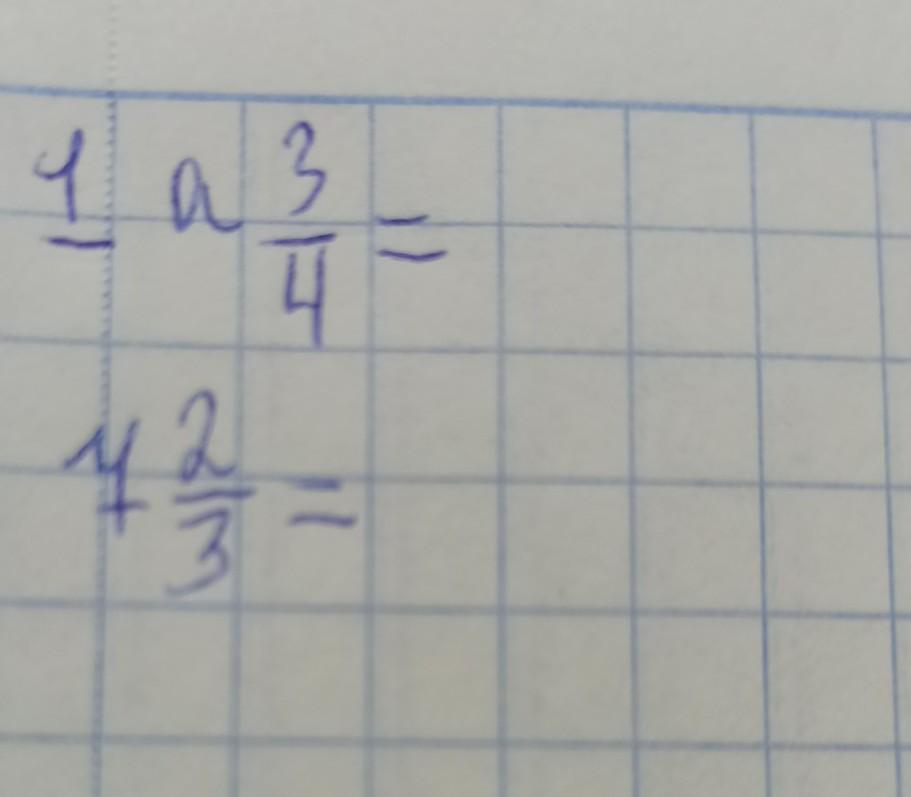 1 a 3/4 =
7 2/3 =